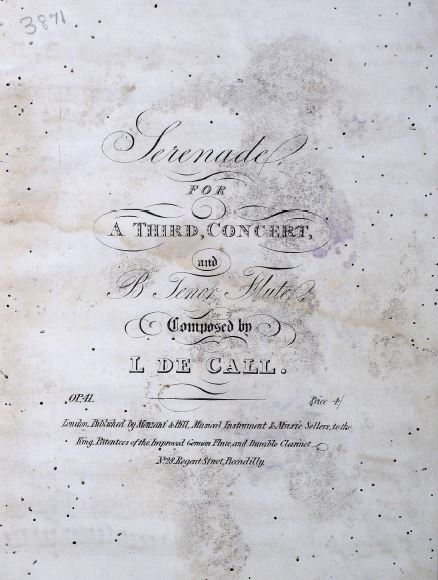 3871
Serenade
FOR
A THIRD, CONCERT,
and
B Tenor Flute,
Composed by
L DE CALL.
OP.41. Price 4/
London, Published by Monzani & Hill, Musical Instrument & Music Sellers, to the
King, Patentees of the Improved German Flute, and Durable Clarinet
No. 28. Regent Street, Piccadilly.